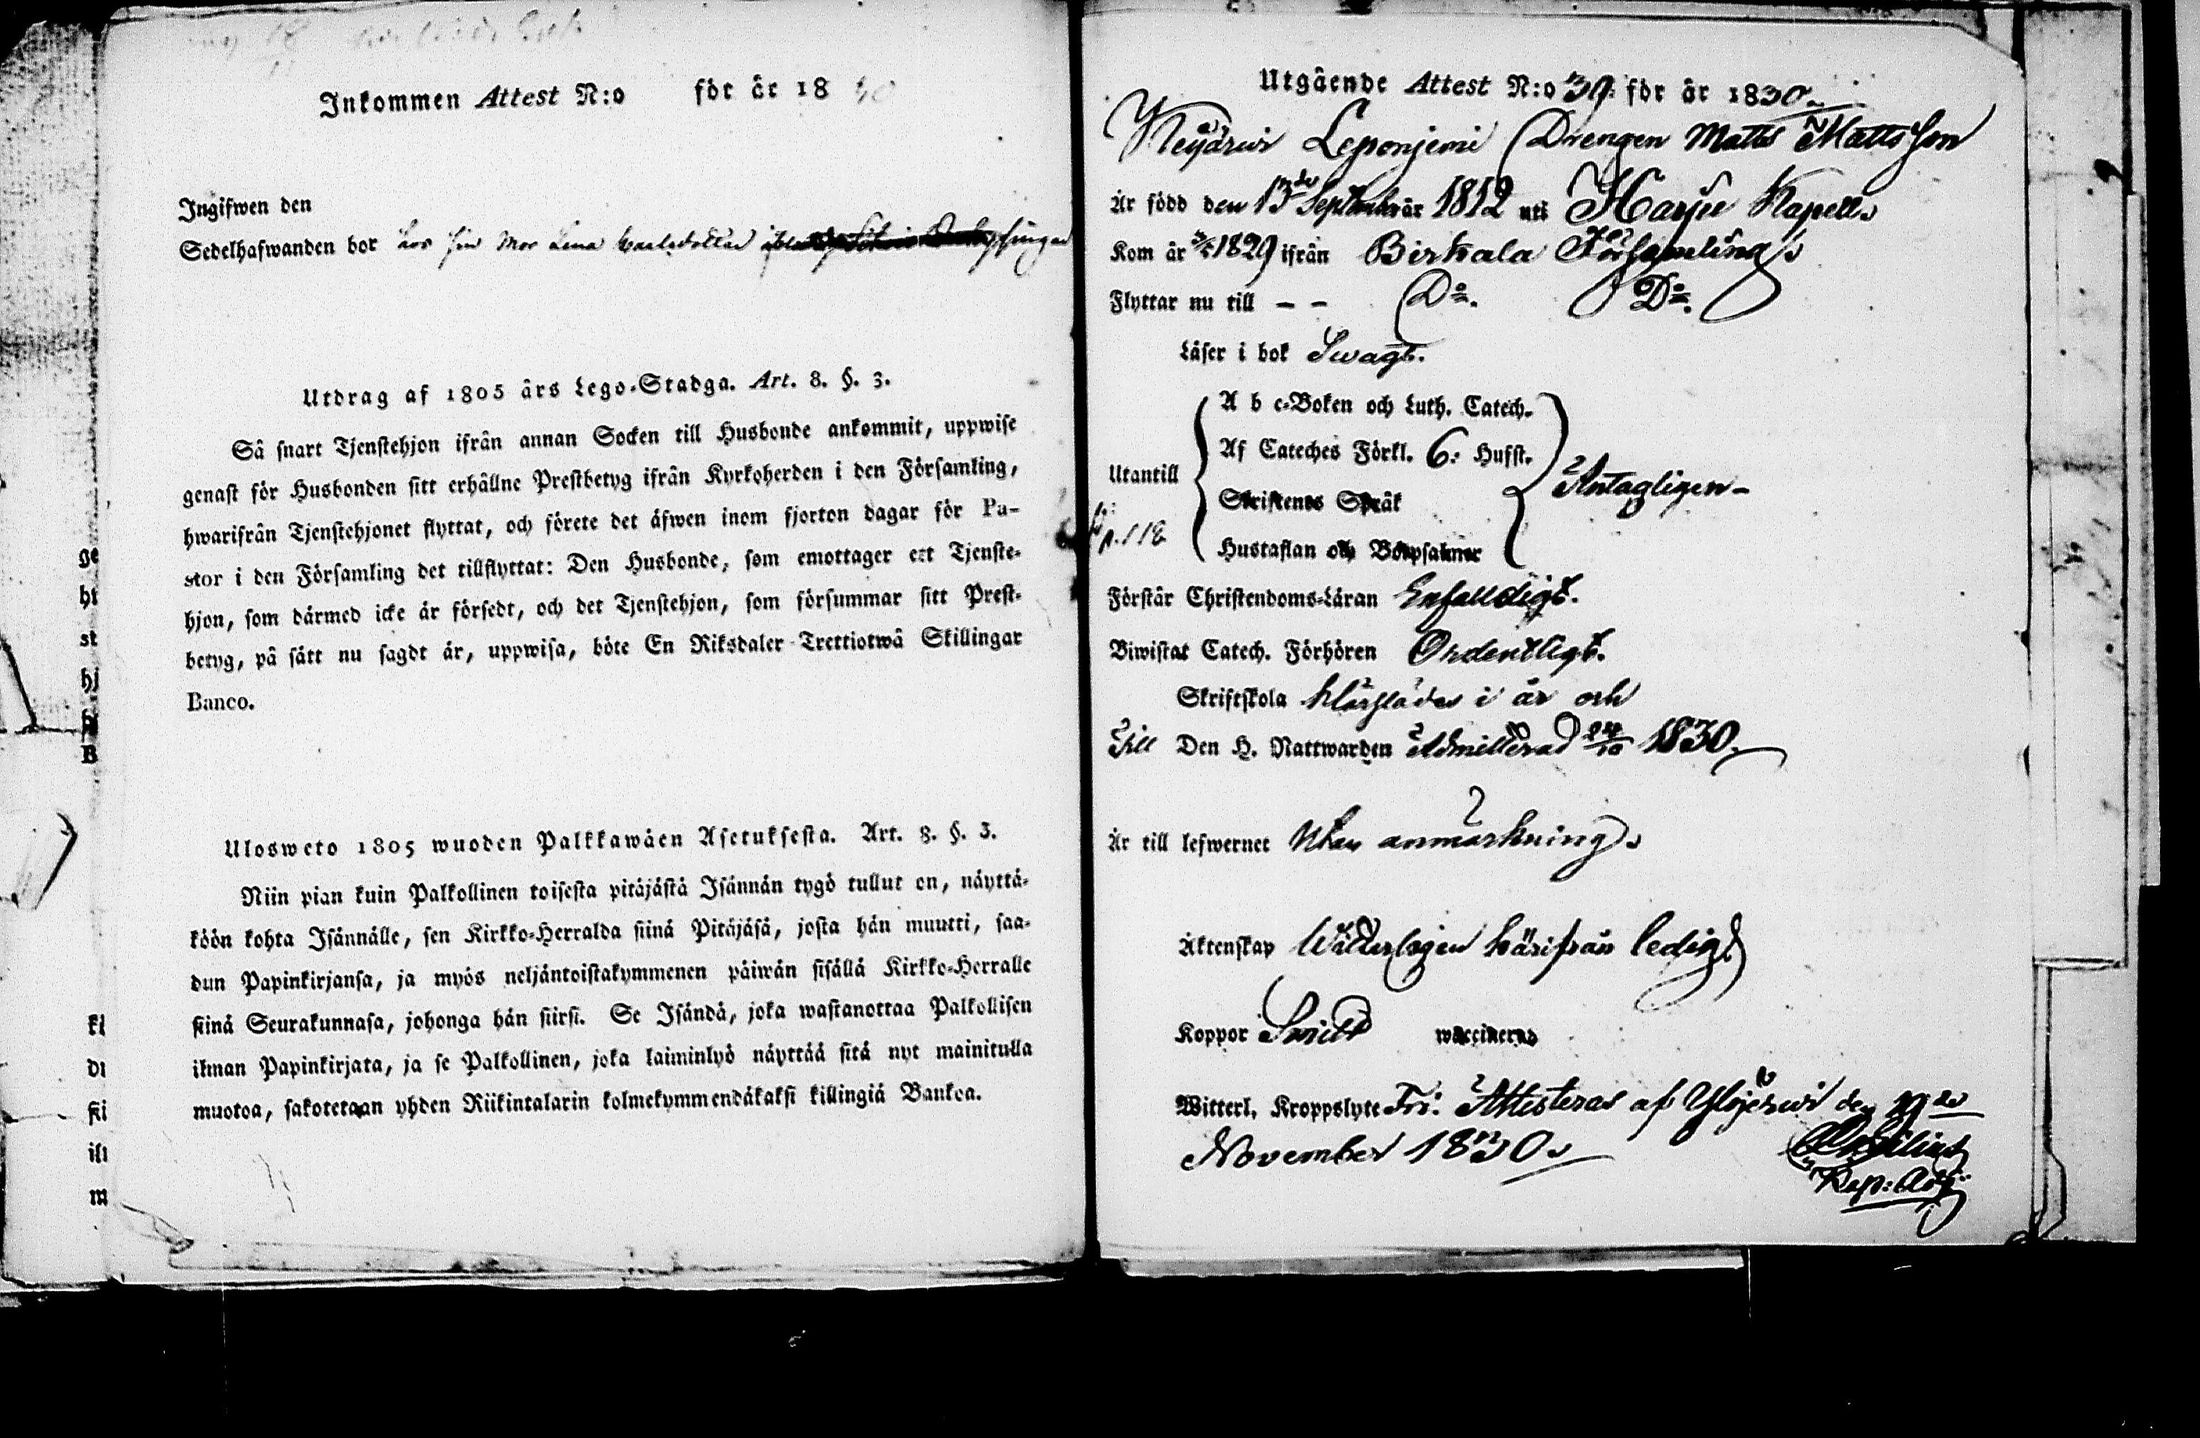 Inkommen Attest N:o för år 18 30
Ingifwen den
Sedelhafwanden bor hos sin Mor Lena Carlsdotter
Utdrag af 1805 års Lego-Stadga. Art. 8. §. 3.
Så snart Tjenstehjon ifrån annan Socken till Husbonde ankommit, uppwise
genast för Husbonden sitt erhållne Prestbetyg ifrån Kyrkoherden i den Församling,
hwarifrån Tjenstehjonet flyttat, och förete det äfwen inom fjorton dagar för Pa-
stor i den Församling det tillflyttat: Den Husbonde, som emottager ett Tjenste-
hjon, som därmed icke är försedt, och det Tjenstehjon, som försummar sitt Prest-
betyg, på sätt nu sagdt är, uppwisa, böte En Riksdaler Trettiotwå Skillingar
Banco.
Ulosweto 1805 wuoden Palkkawäen Asetuksesta. Art. 8. §. 3.
Niin pian kuin Palkollinen toisesta pitäjästä Isännän tygö tullut on, näyttä-
köön kohta Isännälle, sen Kirkko-Herralda siinä Pitäjäsä, josta hän muutti, saa-
dun Papinkirjansa, ja myös neljäntoistakymmenen päiwän sisällä Kirkko-Herralle
siinä Seurakunnasa, johonga hän siirsi. Se Isändä, joka wastanottaa Palkollisen
ilman Papinkirjata, ja se Palkollinen, joka laiminlyö näyttää sitä nyt mainitulla
muotoa, sakotetaan yhden Riikintalarin kolmekymmendäkaksi killingiä Bankoa.
Utgående Attest N:o 39 för år 1830
Leponjemi Drengen Matts Mattsson
Är född den 13de September år 1812 uti Harju Kapell
Kom år 1829 ifrån Birkala Församling
Flyttar nu till – – Do. Do.
Läser i bok Swagt.
A b c-Boken och Luth. Catech.
Af Cateches Förkl. 6: Hufst.
Utantill Antagligen -
Skriftenes Språk
p. 118
Hustaflan och Botpsalmer
Förstår Christendoms-Läran Enfalldigt.
Biwistat Catech. Förhören Ordentligt.
Skriftskola i år och
Till Den H. Nattwarden Admitterad 24/10 1830
Är till lefwernet Utan anmärkning
Äktenskap Witterlogen härifrån ledig
Koppor waccinerad
Witterl. Kroppslyte Fri. Attesteras af Ylöjerwi den 19de
November 1830
Kap: Adj: